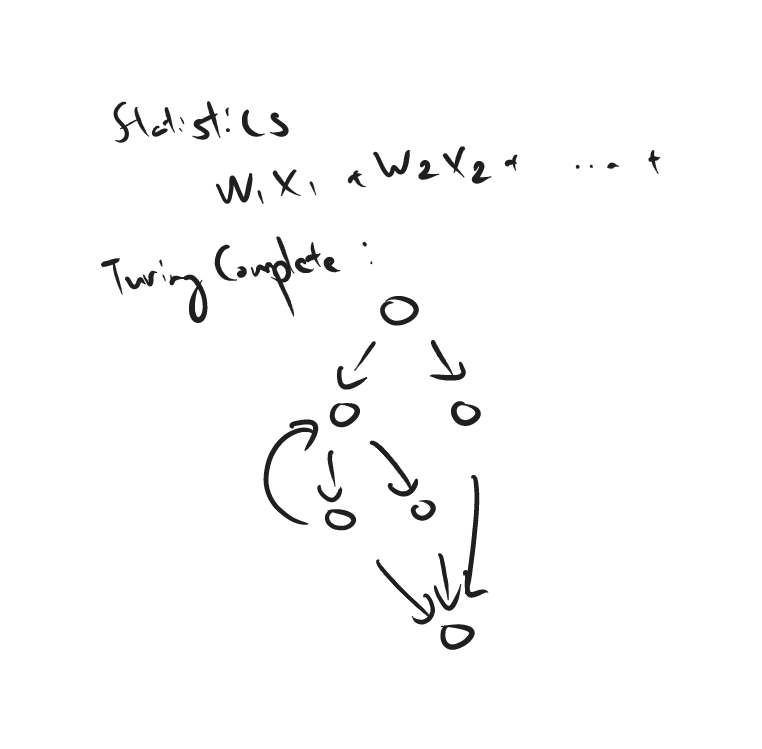 Statistics
W₁X₁ + W₂X₂ + .... +
Turing Complete :